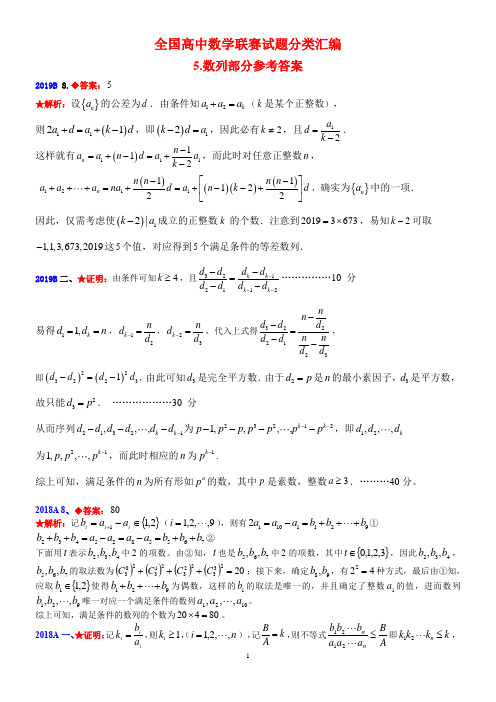 全国高中数学联赛试题分类汇编
5.数列部分参考答案
2019B 8.◆答案：5
★解析：设{a_n}的公差为d．由条件知a_1+a_2=a_k（k是某个正整数），
则2a_1+d=a_1+(k-1)d，即(k-2)d=a_1，因此必有k≠2，且d=a_1/(k-2)．
这样就有a_n=a_1+(n-1)d=a_1+(n-1)/(k-2) a_1，而此时对任意正整数n，
a_1+a_2+⋯+a_n=na_1+n(n-1)/2 d=a_1+[(n-1)(k-2)+n(n-1)/2]d，确实为{a_n}中的一项．
因此，仅需考虑使(k-2)|a_1成立的正整数k 的个数．注意到2019=3×673，易知k-2可取
-1,1,3,673,2019这5个值，对应得到5个满足条件的等差数列．
2019B二、★证明：由条件可知k≥4，且(d_3-d_2)/(d_2-d_1)=(d_k-d_{k-1})/(d_{k-1}-d_{k-2})……………10 分
易得d_1=1,d_k=n，d_{k-1}=n/d_2，d_{k-2}=n/d_3，代入上式得(d_3-d_2)/(d_2-d_1)=(n-n/d_2)/(n/d_2-n/d_3)，
即(d_3-d_2)^2=(d_2-1)^2 d_3，由此可知d_3是完全平方数．由于d_2=p是n的最小素因子，d_3是平方数，
故只能d_3=p^2． ………………30 分
从而序列d_2-d_1,d_3-d_2,⋯,d_k-d_{k-1}为p-1,p^2-p,p^3-p^2,⋯,p^{k-1}-p^{k-2}，即d_1,d_2,⋯,d_k
为1,p,p^2,⋯,p^{k-1}，而此时相应的n为p^{k-1}．
综上可知，满足条件的n为所有形如p^a的数，其中p是素数，整数a≥3．………40分。
2018A 8、◆答案：80
★解析：记b_i=a_{i+1}-a_i∈{1,2}（i=1,2,⋯,9），则有2a_1=a_10-a_1=b_1+b_2+⋯+b_9①
b_2+b_3+b_4=a_5-a_2=a_8-a_5=b_5+b_6+b_7②
下面用t表示b_2,b_3,b_4中2的项数。由②知，t也是b_5,b_6,b_7中2的项数，其中t∈{0,1,2,3}，因此b_2,b_3,b_4，
b_5,b_6,b_7的取法数为(C_3^0)^2+(C_3^1)^2+(C_3^2)^2+(C_3^3)^2=20；接下来，确定b_8,b_9，有2^2=4种方式，最后由①知，
应取b_1∈{1,2}使得b_1+b_2+⋯+b_9为偶数，这样的b_1的取法是唯一的，并且确定了整数a_1的值，进而数列
b_1,b_2,⋯,b_9唯一对应一个满足条件的数列a_1,a_2,⋯,a_10。
综上可知，满足条件的数列的个数为20×4=80。
2018A一、★证明：记k_i=b_i/a_i，则k_i≥1，（i=1,2,⋯,n），记B/A=k，则不等式b_1b_2⋯b_n/a_1a_2⋯a_n≤B/A即k_1k_2⋯k_n≤k，
1